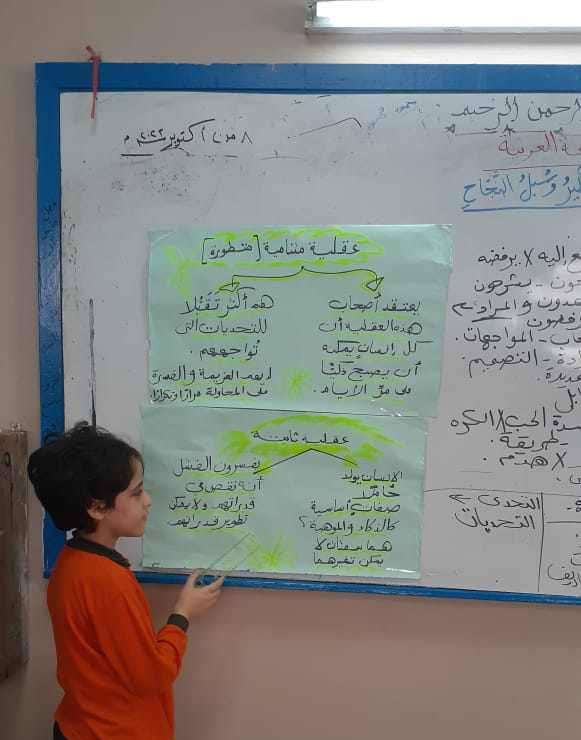 ٨ من أكتوبر ٢٠٢٢ م
احمن الرحيم
ة العربية
وسبل النجاح
عقلية متنامية [متطورة]
يعتقد أصحاب
هذه العقلية أن
كل إنسان يمكنه
أن يصبح ذكيًّا
على مرّ الأيام.
هم أكثر تَقَبُّلًا
للتحديات التى
تُواجههم.
لديهم العزيمة والقدرة
على المحاولة مرارًا وتكرارًا.
عقلية ثابتة
الإنسان يولد
صفات أساسية
كالذكاء والموهبة
هما صفتان لا
يمكن تغيرهما
يفسرون الفشل
أنه نقص فى
قدراتهم ولا يمكن
تطوير قدراتهم
ع إليه X يرفضه
المواجهات.
التصميم
الحب X الكره
طريقة.
X هدم.
التحدى
التحديات